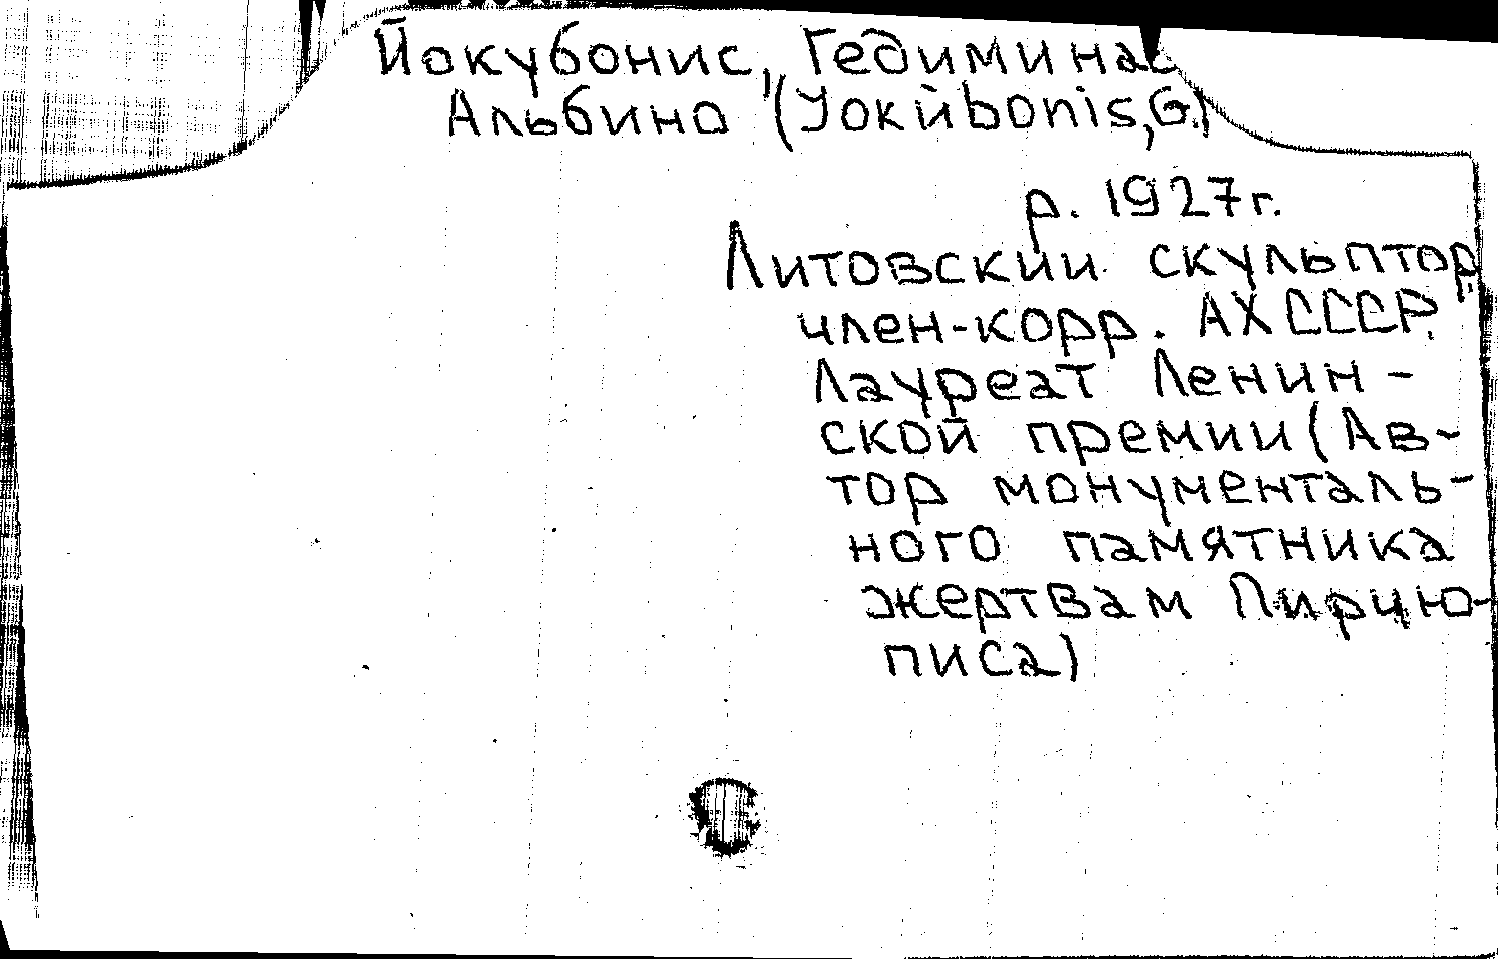 Йокубонис, Гедиминас
Альбино (Yokйbonis, G.)
р. 1927г.
Литовский скульптор,
член-корр. АХ СССР.
Лауреат Ленин-
ской премии (Ав-
тор монументаль-
ного памятника
жертвам Пирчю-
писа)